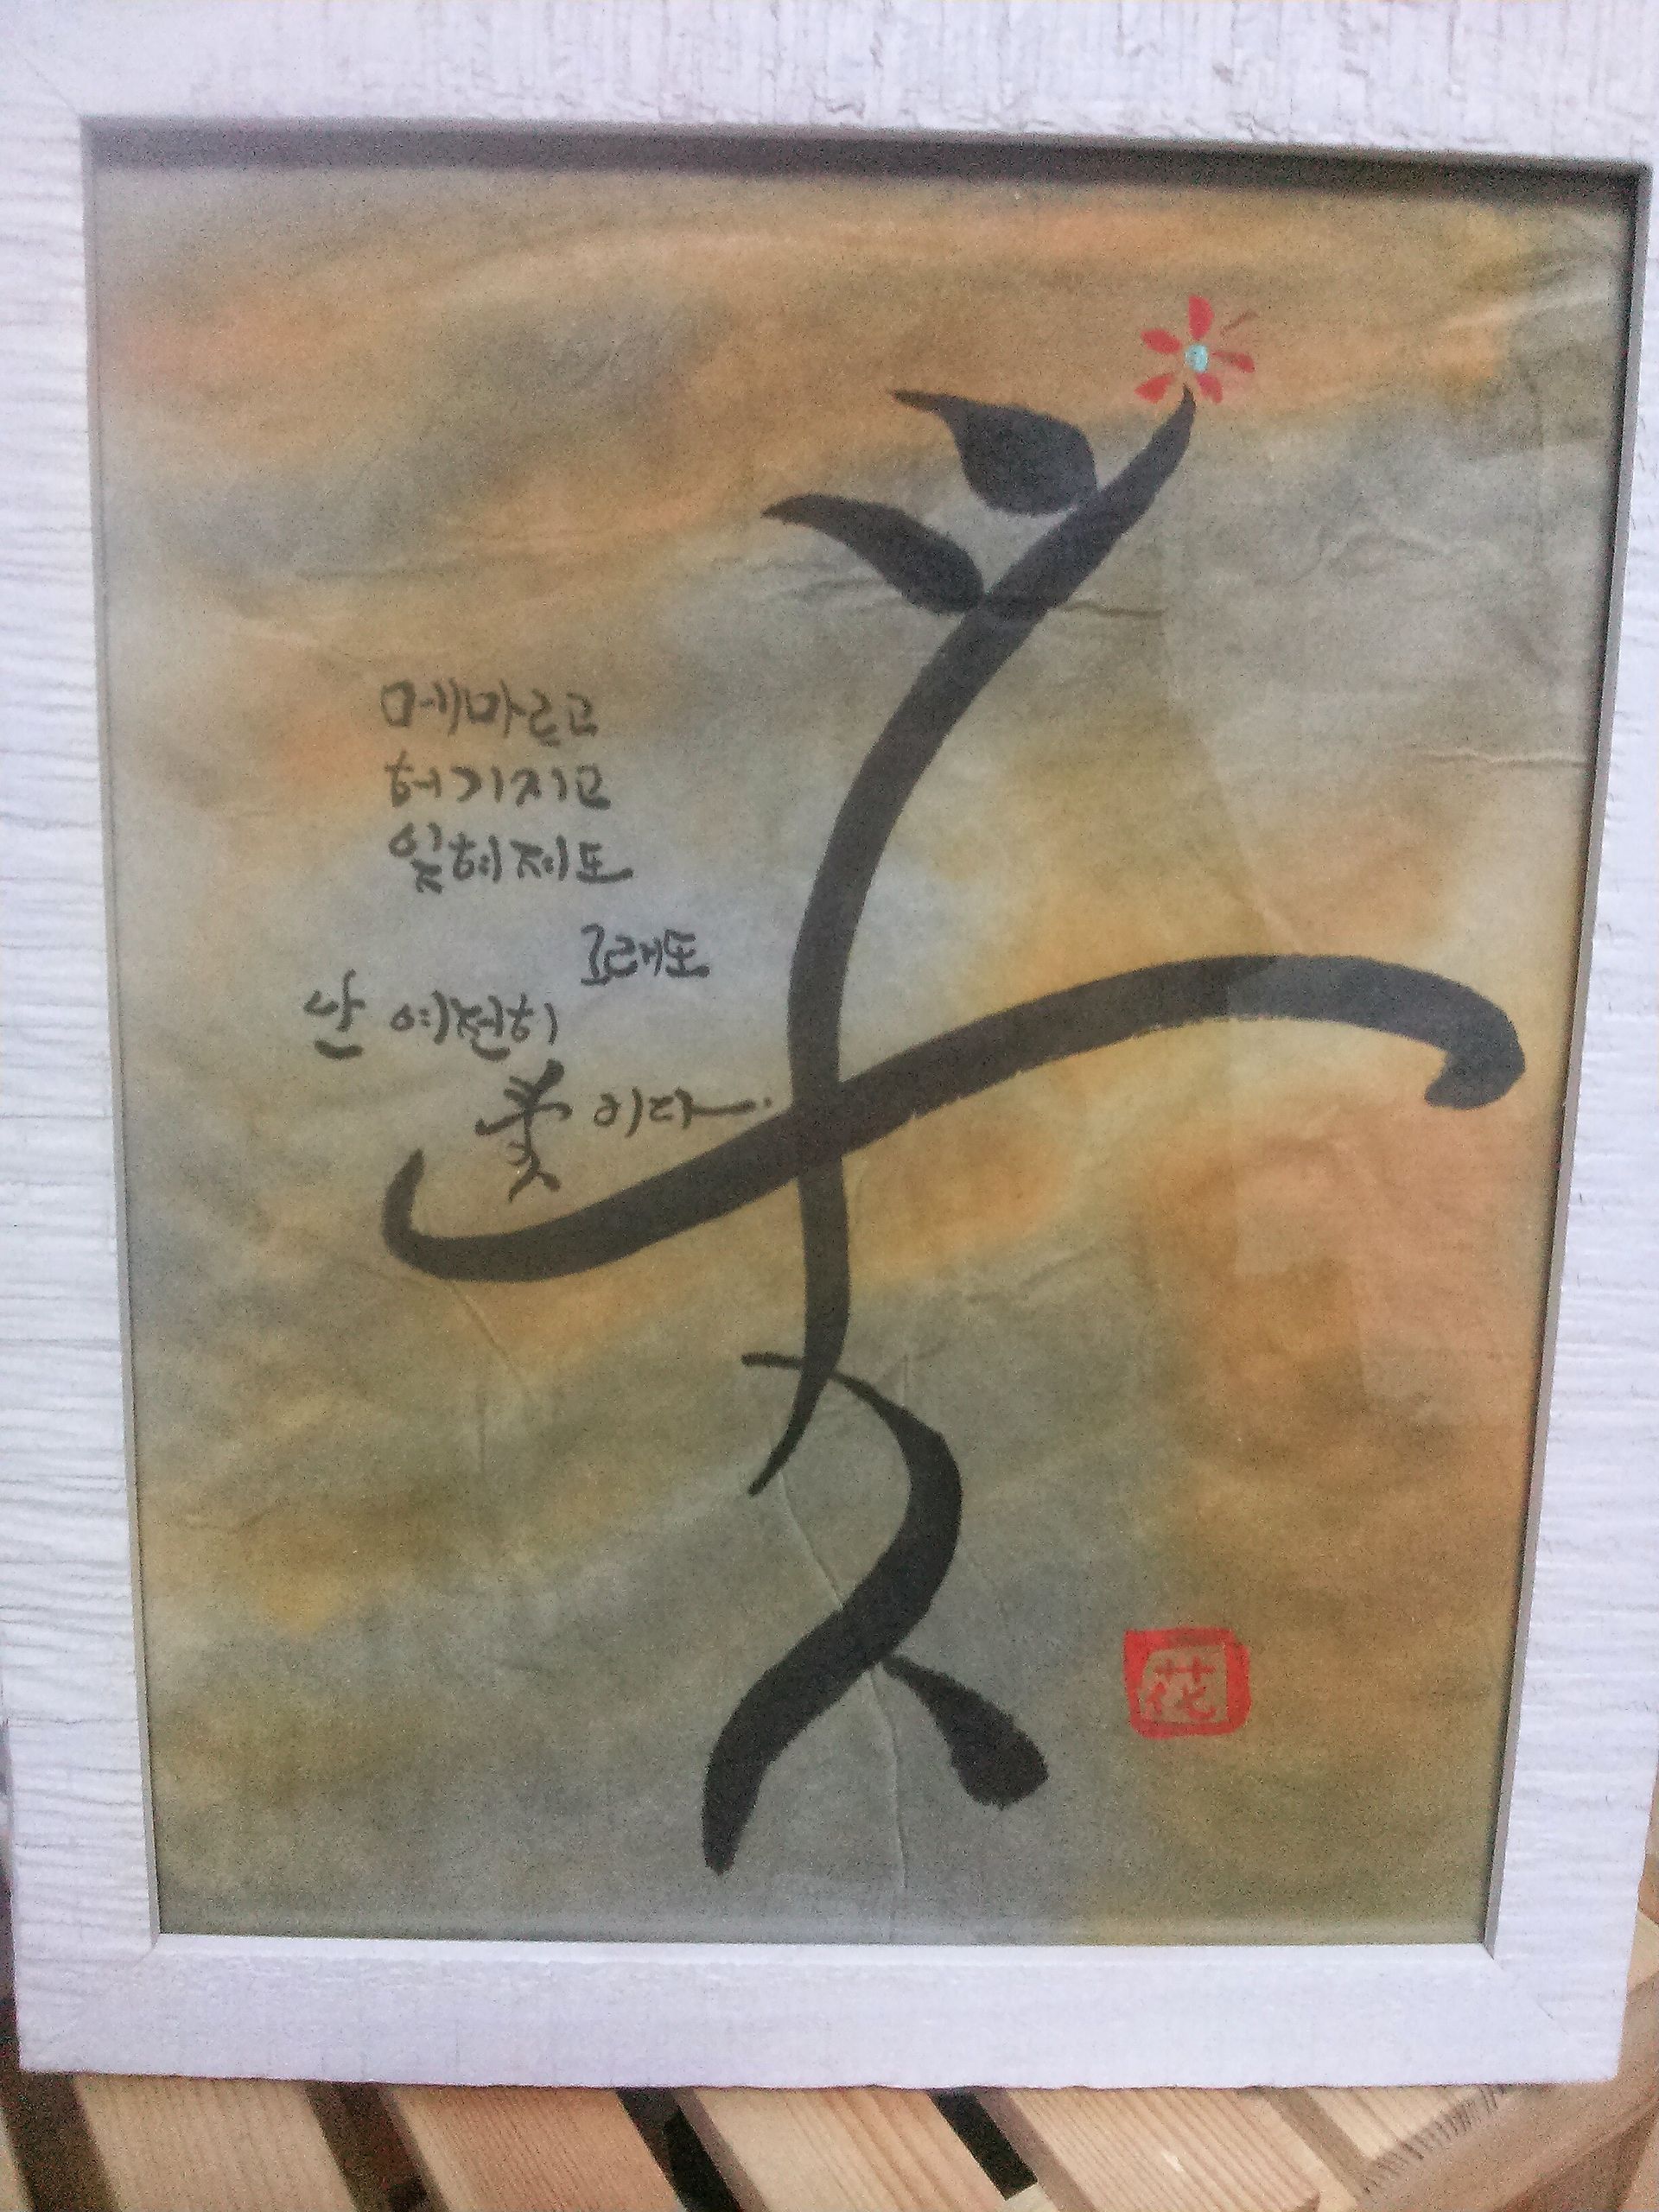 메마르고
허기지고
잊혀져도
그래도
난 여전히
꽃이다.
花